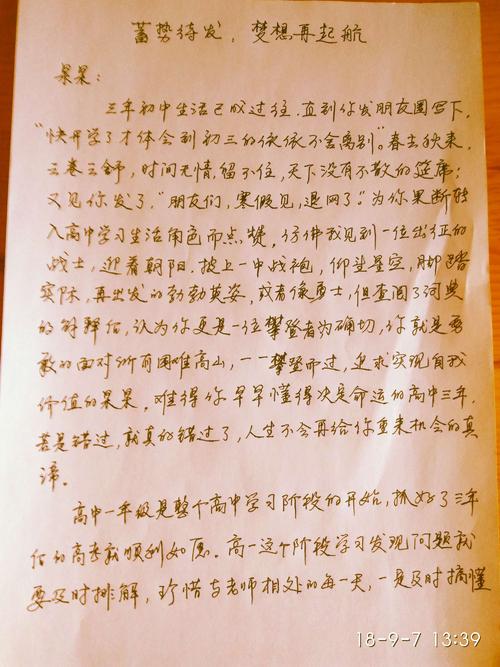 蓄势待发，梦想再起航
杲杲：
三年初中生活已成过往，直到你发朋友圈写下，
“快开学了才体会到初三的依依不舍离别”。春去秋来，
云卷云舒，时间无情，留不住，天下没有不散的筵席；
又见你发了，“朋友们，寒假见，退网了。”为你果断转
入高中学习生活角色而点赞，仿佛我见到一位出征的
战士，迎着朝阳，披上一中战袍，仰望星空，脚踏
实际，再出发的勃勃英姿，或者像勇士，但查阅了词典
的解释后，认为你更是一位攀登者为确切，你就是勇
敢的面对所有困难高山，一一攀登而过，追求实现自我
价值的杲杲，难得你早早懂得决定命运的高中三年，
若是错过，就真的错过了，人生不会再给你重来机会的真
谛。
高中一年级是整个高中学习阶段的开始，抓好了三年
后的高考就顺利如愿。高一这个阶段学习发现问题就
要及时排解，珍惜与老师相处的每一天，一是及时搞懂
18-9-7 13:39